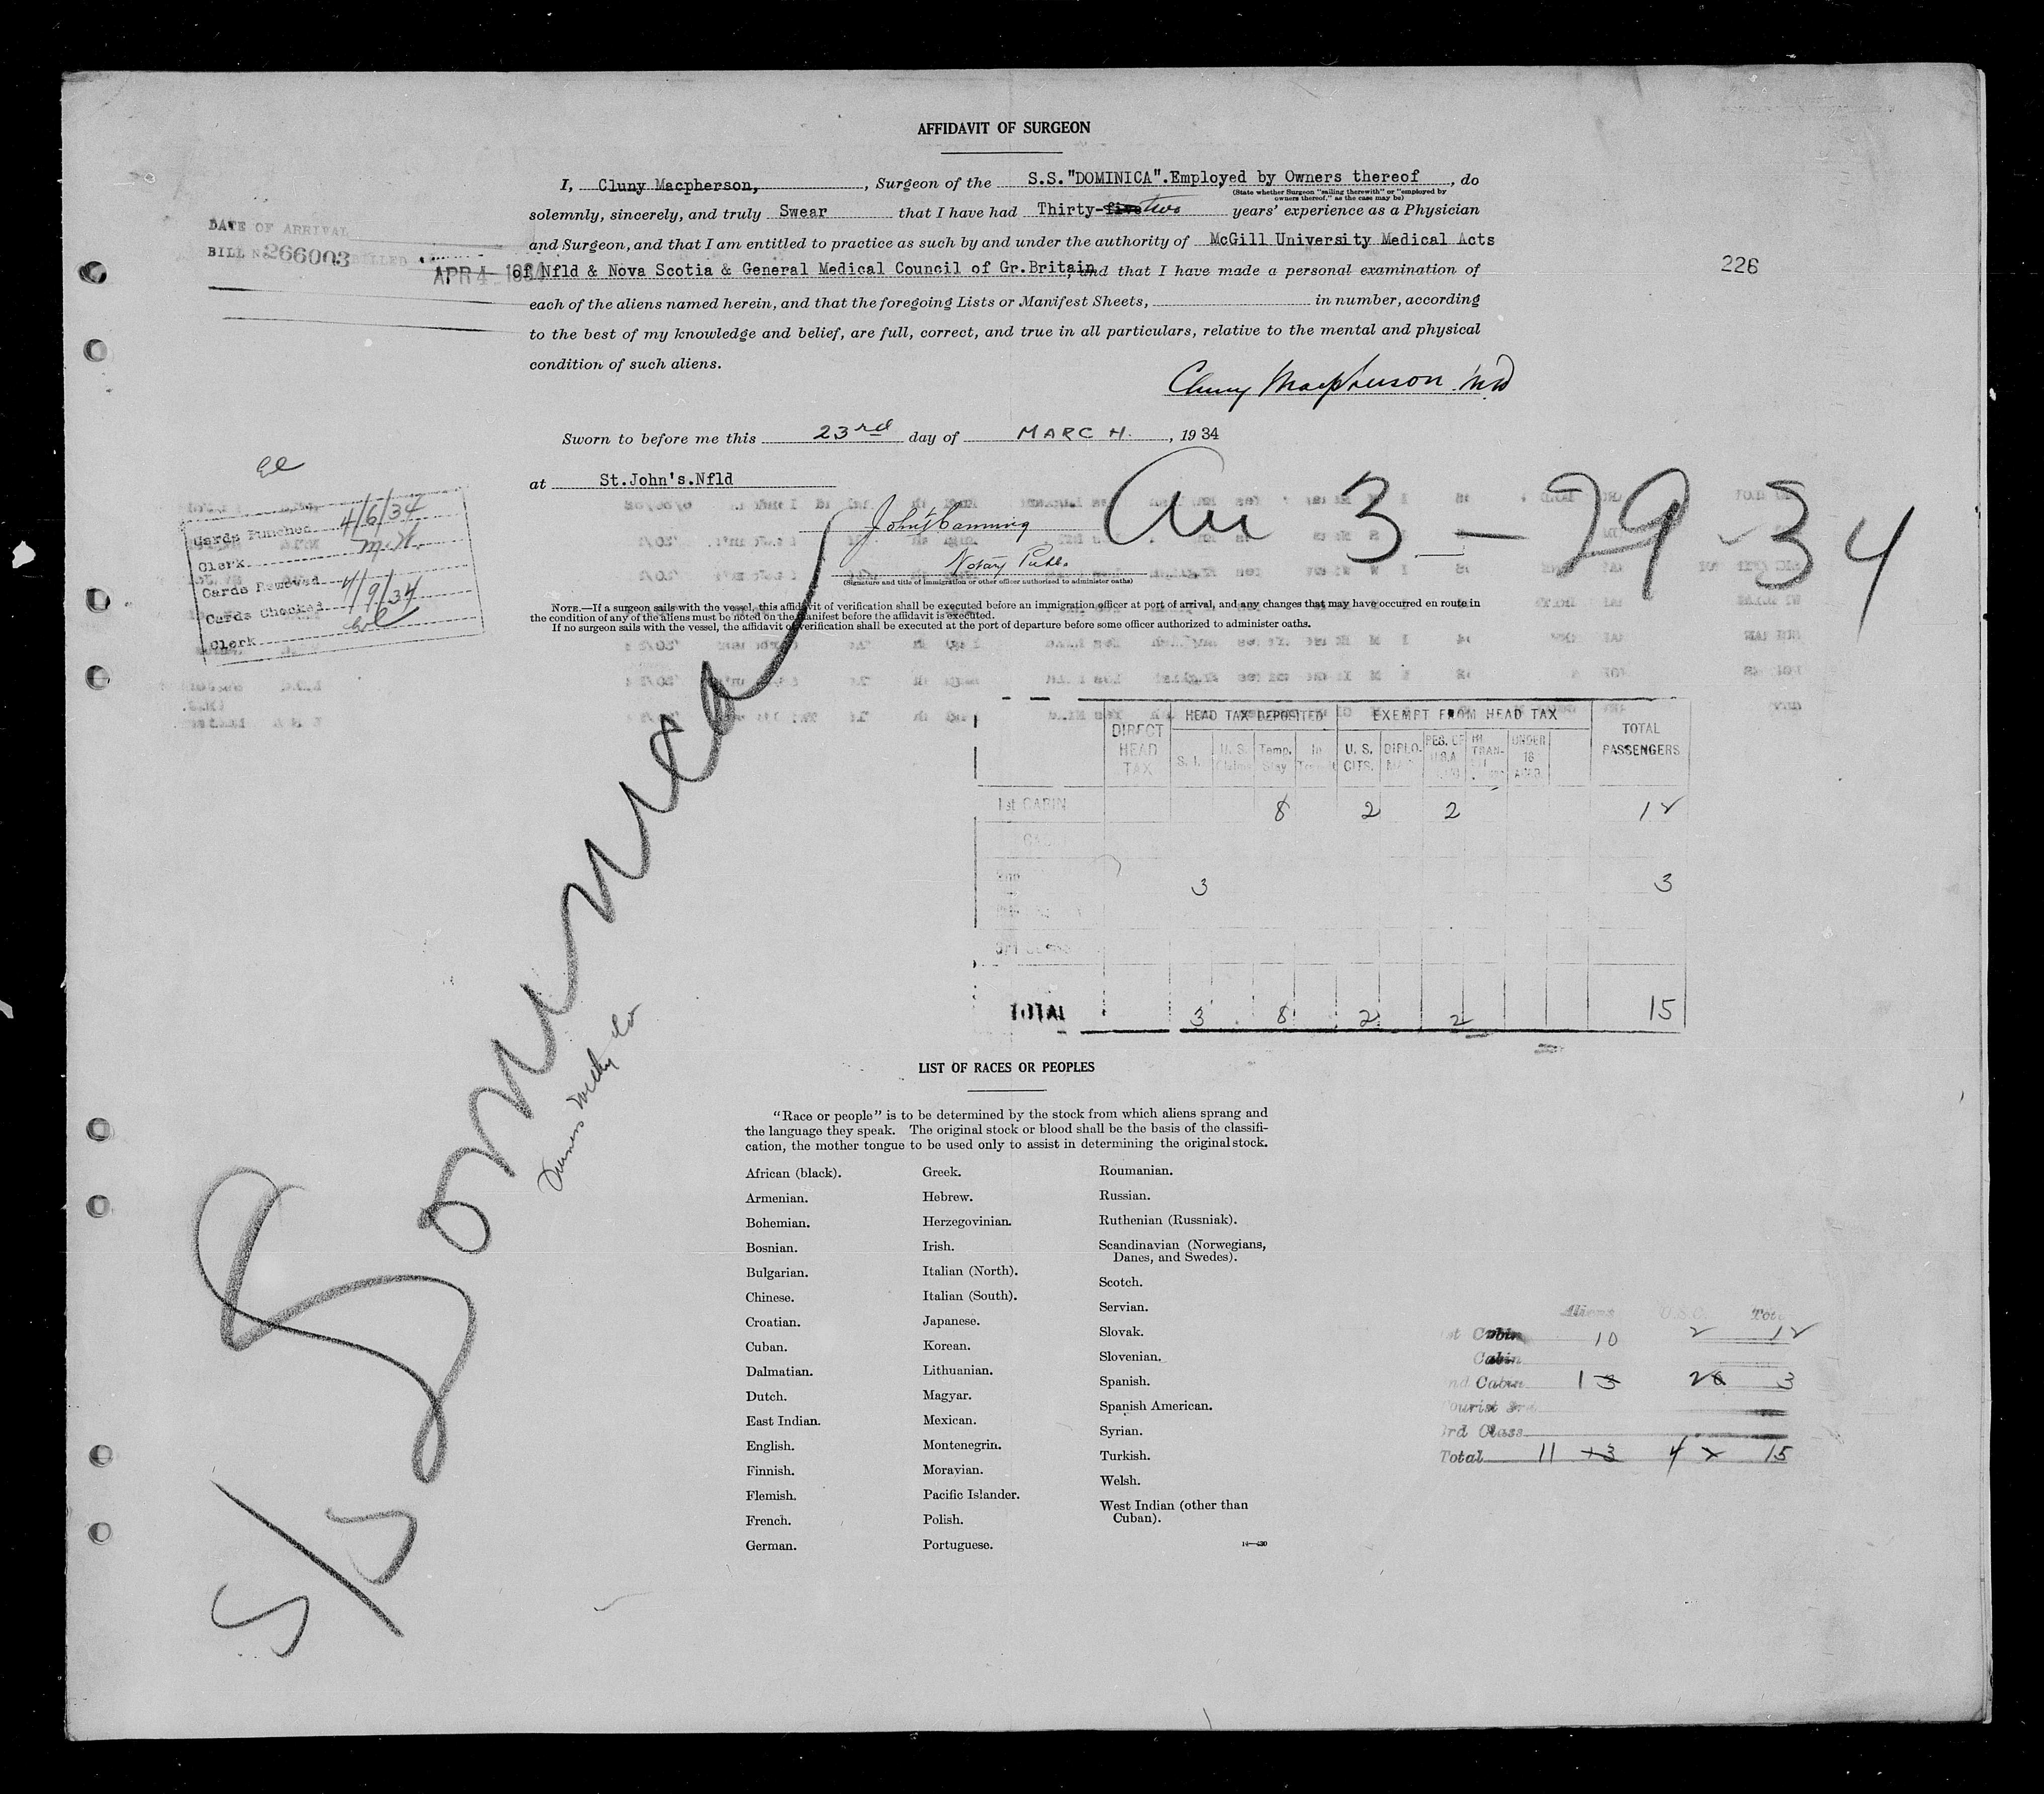 AFFIDAVIT OF SURGEON
I, Cluny Macpherson, , Surgeon of the S.S."DOMINICA".Employed by Owners thereof , do
(State whether Surgeon "sailing therewith" or "employed by
owners thereof," as the case may be)
solemnly, sincerely, and truly Swear that I have had Thirty-five two years' experience as a Physician
and Surgeon, and that I am entitled to practice as such by and under the authority of McGill University Medical Acts
of Nfld & Nova Scotia & General Medical Council of Gr.Britain, and that I have made a personal examination of
each of the aliens named herein, and that the foregoing Lists or Manifest Sheets, in number, according
to the best of my knowledge and belief, are full, correct, and true in all particulars, relative to the mental and physical
condition of such aliens.
Cluny Macpherson MD
DATE OF ARRIVAL
BILL No 266003 BILLED
APR 4 - 1934
226
Sworn to before me this 23rd day of MARCH. , 1934
at St.John's.Nfld
Notary Public
(Signature and title of immigration or other officer authorized to administer oaths)
3-29-34
Cards Punched 4/6/34
Clerk M.H.
Cards Removed
Cards Checked 4/9/34
Clerk
NOTE.—If a surgeon sails with the vessel, this affidavit of verification shall be executed before an immigration officer at port of arrival, and any changes that may have occurred en route in
the condition of any of the aliens must be noted on the manifest before the affidavit is executed.
If no surgeon sails with the vessel, the affidavit of verification shall be executed at the port of departure before some officer authorized to administer oaths.
S/S Dominica
DIRECT HEAD TAX
HEAD TAX DEPOSITED
EXEMPT FROM HEAD TAX
TOTAL PASSENGERS
S. I. U. S. Claims Temp. Stay In Transit U. S. CITS. DIPLO. RES. OF U.S.A. TRAN- UNDER 16
1st CABIN 8 2 2 12
2nd 3 3
TOTAL 3 8 2 2 15
LIST OF RACES OR PEOPLES
"Race or people" is to be determined by the stock from which aliens sprang and
the language they speak. The original stock or blood shall be the basis of the classifi-
cation, the mother tongue to be used only to assist in determining the original stock.
African (black).
Armenian.
Bohemian.
Bosnian.
Bulgarian.
Chinese.
Croatian.
Cuban.
Dalmatian.
Dutch.
East Indian.
English.
Finnish.
Flemish.
French.
German.
Greek.
Hebrew.
Herzegovinian.
Irish.
Italian (North).
Italian (South).
Japanese.
Korean.
Lithuanian.
Magyar.
Mexican.
Montenegrin.
Moravian.
Pacific Islander.
Polish.
Portuguese.
Roumanian.
Russian.
Ruthenian (Russniak).
Scandinavian (Norwegians,
Danes, and Swedes).
Scotch.
Servian.
Slovak.
Slovenian.
Spanish.
Spanish American.
Syrian.
Turkish.
Welsh.
West Indian (other than
Cuban).
Aliens U.S.C. Tot
st Cabin 10 2 12
Cabin
nd Cabin 1 3 2 0 3
Tourist 3rd
3rd Class
Total 11 13 4 15